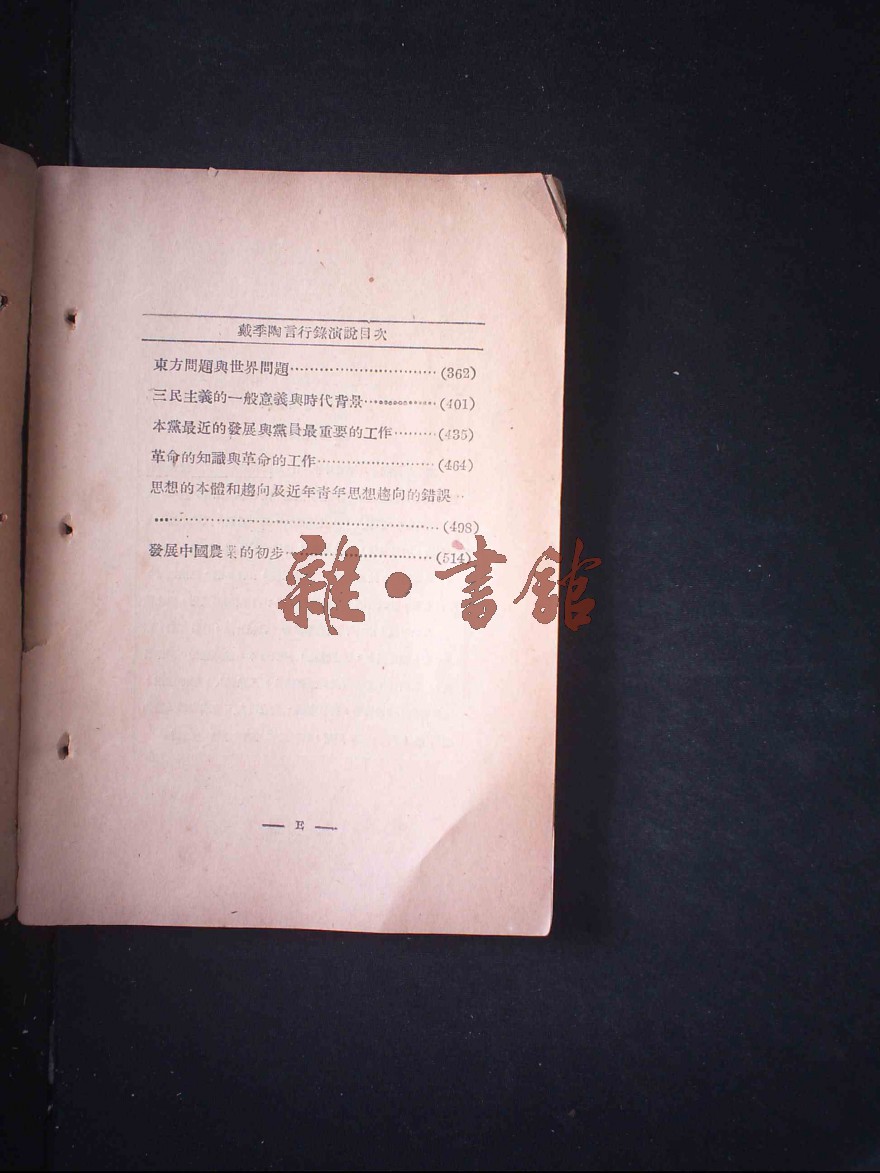 戴季陶言行錄演說目次
東方問題與世界問題…………………………(362)
三民主義的一般意義與時代背景……………(401)
本黨最近的發展與黨員最重要的工作………(435)
革命的知識與革命的工作……………………(464)
思想的本體和趨向及近年青年思想趨向的錯誤…
………………………………………………………(498)
發展中國農業的初步…………………………(514)
雜·書館
— E —